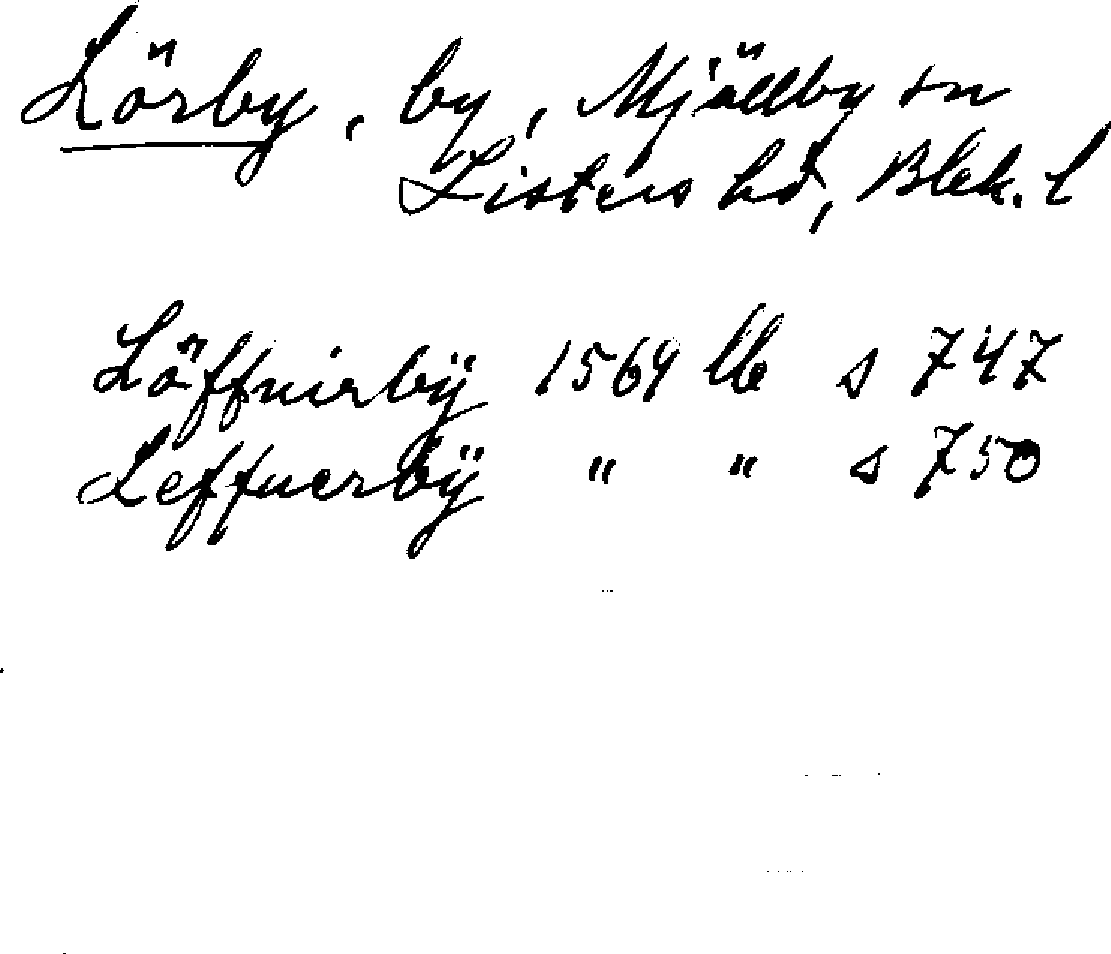 Lörby, by, Mjällby sn
Listers hd, Blek. l
Löffuirbÿ 1569 lb s 747
Leffuerbÿ " " s 750